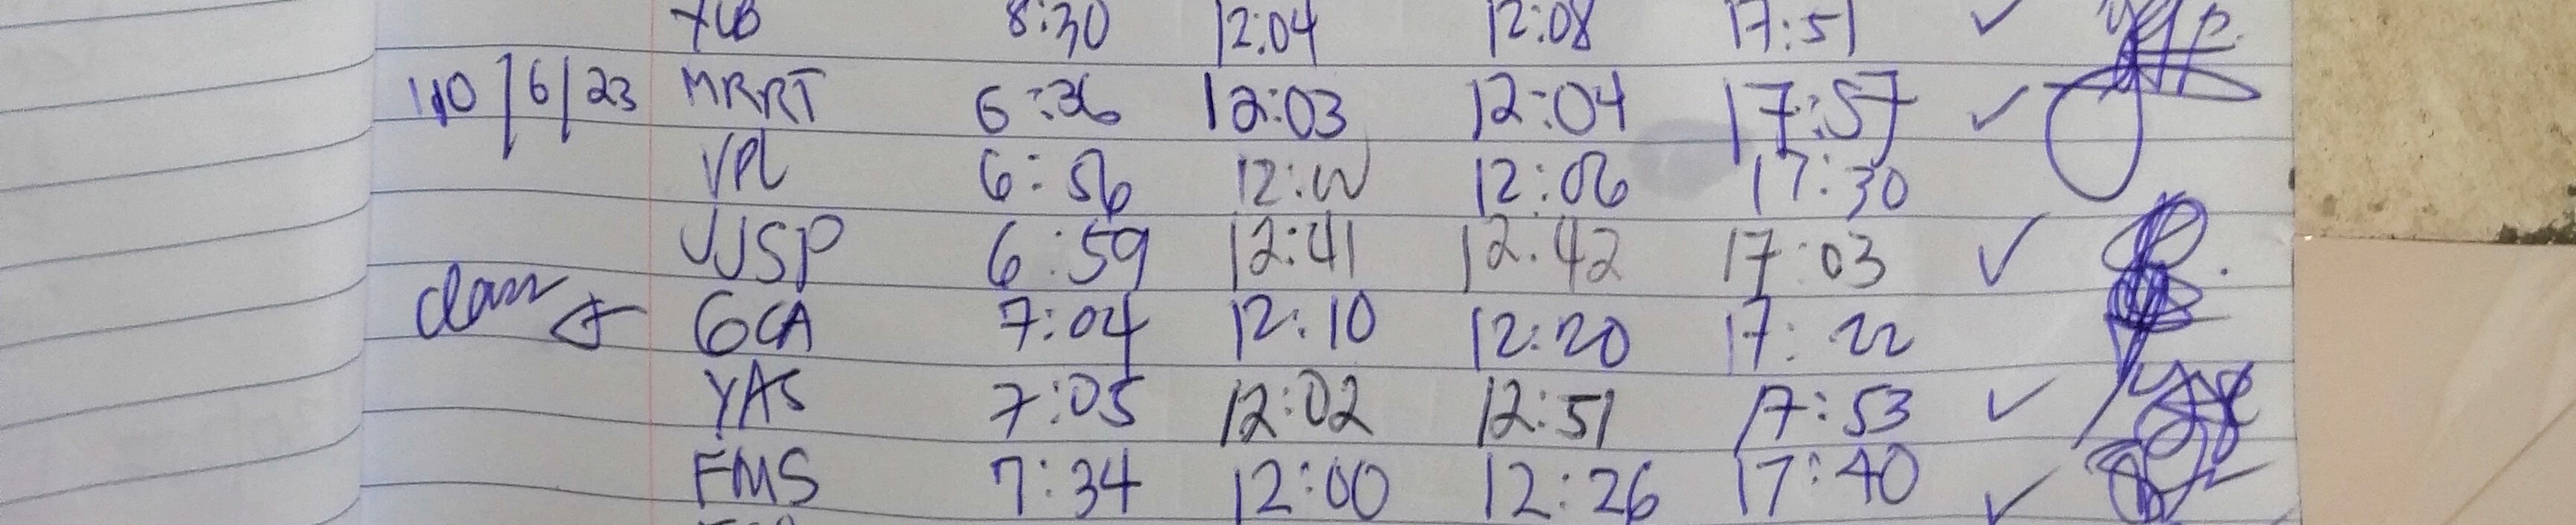 8:30 12:04 12:08 17:51 ✓
10/6/23 MRRT 6:36 12:03 12:04 17:57 ✓
VPL 6:56 12:00 12:06 17:30
JJSP 6:59 12:41 12:42 17:03 ✓
GCA 7:04 12:10 12:20 17:22
YAS 7:05 12:02 12:51 17:53 ✓
FMS 7:34 12:00 12:26 17:40 ✓